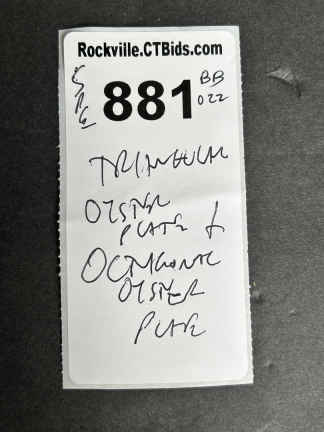 Rockville.CTBids.com
881
BB
022
TRIANGULAR
OISTER
PLATE +
OCTAGONAL
OISTER
PLATE